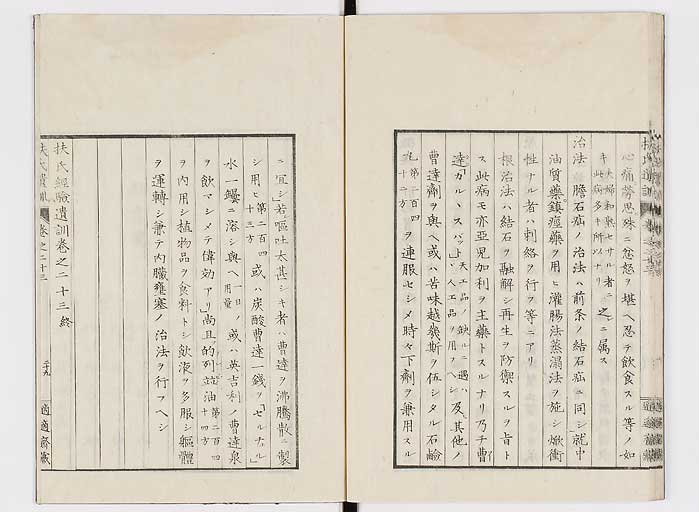 心痛労思殊ニ忿怒ヲ堪ヘ忍テ飲食スル等ノ如
キ夫婦和熟セサル者ニ
此病多キ所以ナリ
之ニ属ス
治法 膽石疝ノ治法ハ前条ノ結石疝ニ同シ就中
油質藥鎮痙藥ヲ用ヒ灌腸法蒸溻法ヲ施シ焮衝
性ナル者ハ刺絡ヲ行フ等ニアリ
根治法ハ結石ヲ融解シ再生ヲ防禦スルヲ旨ト
ス此病モ亦亜児加利ヲ主藥トスルナリ乃チ曹
達「カルヽスバット」天工品ノ缺ルニ遇ハ
人工品ヲ用フヘシ
及ヒ其他ノ
曹達剤ヲ與ヘ或ハ苦味越幾斯ヲ伍シタル石鹼
丸第二百四
十二方
ヲ連服セシメ時々下剤ヲ兼用スル
ニ宜シ若嘔吐太甚シキ者ハ曹達ヲ沸騰散ニ製
シ用ヒ第二百四
十三方
或ハ炭酸曹達一銭ヲ「セルテル」
水一罎ニ浴シ與ヘ一日ノ
用量
或ハ英吉利ノ曹達泉
ヲ飲マシメテ偉効アリ尚且的列並油第二百四
十四方
ヲ内用シ植物品ヲ食料トシ飲液ヲ多服シ軀體
ヲ運轉シ兼テ内臓壅塞ノ治法ヲ行フヘシ
扶氏經驗遺訓巻之二十三終
扶氏遺訓 巻之二十三
二十九
適適齋蔵